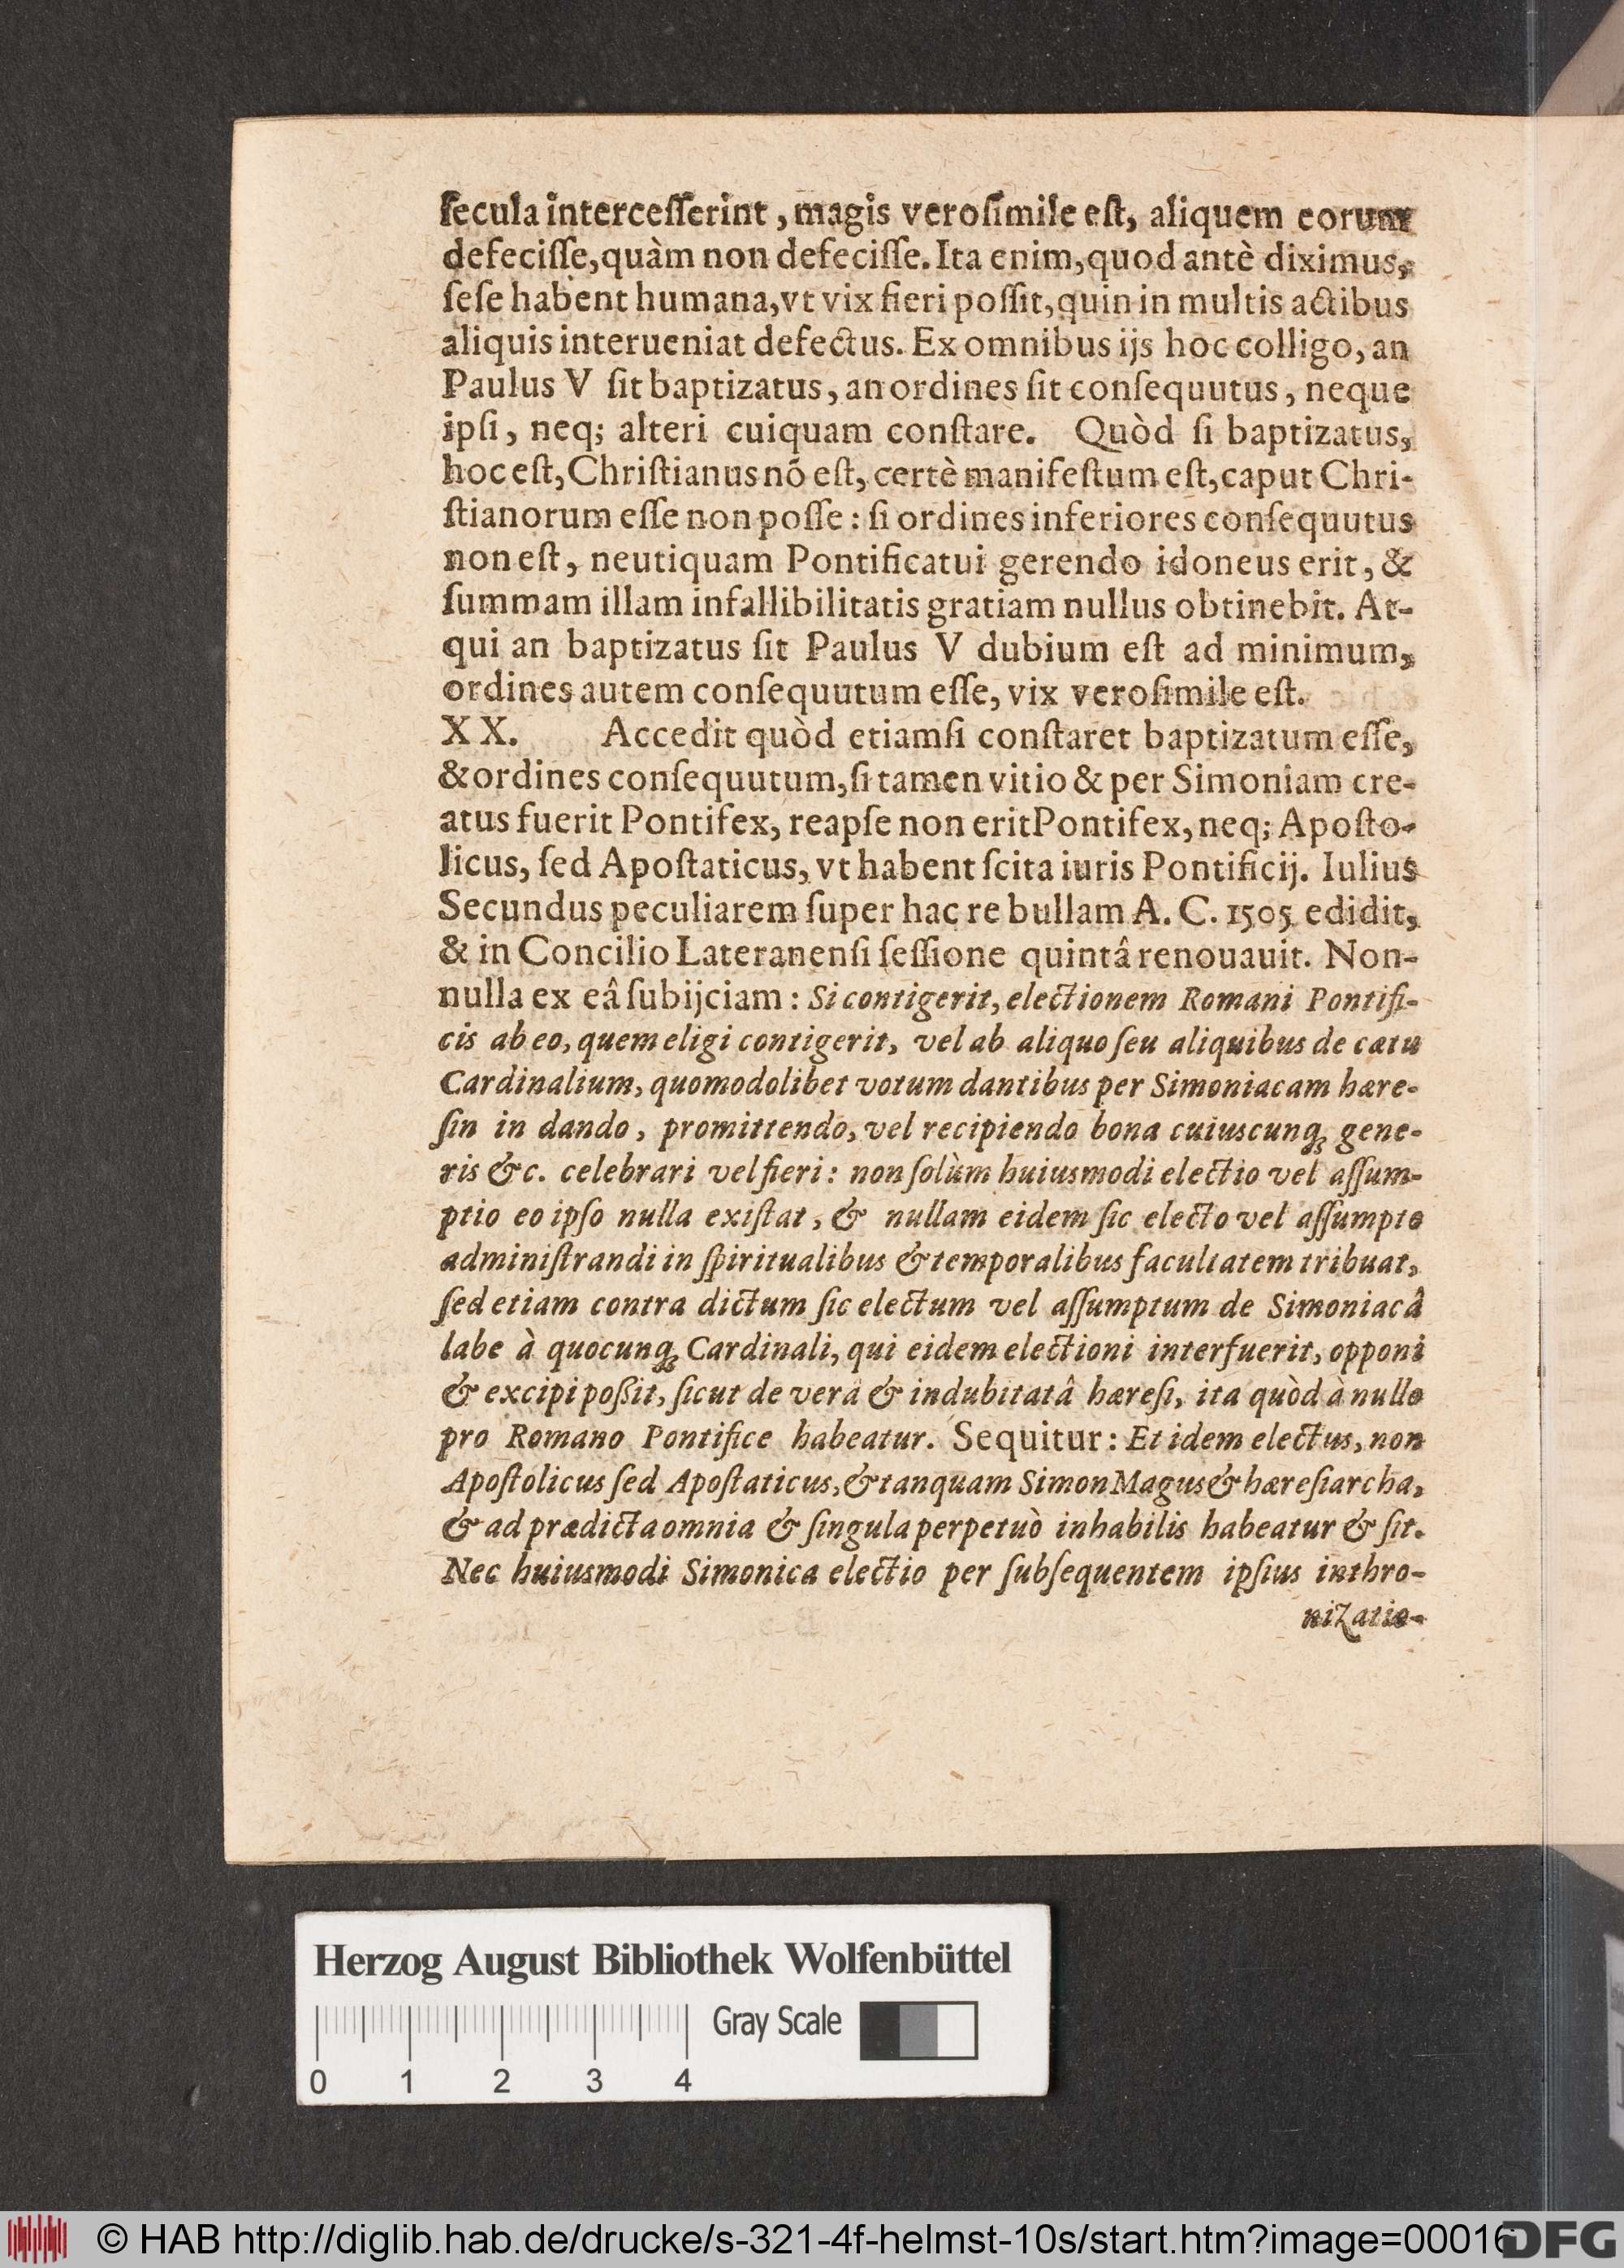 ſecula interceſſerint, magis veroſimile eſt, aliquem eorum
defeciſſe, quàm non defeciſſe. Ita enim, quod antè diximus,
ſeſe habent humana, vt vix fieri poſſit, quin in multis actibus
aliquis interueniat defectus. Ex omnibus ijs hoc colligo, an
Paulus V ſit baptizatus, an ordines ſit conſequutus, neque
ipſi, neq; alteri cuiquam conſtare. Quòd ſi baptizatus,
hoc eſt, Chriſtianus nō eſt, certè manifeſtum eſt, caput Chri-
ſtianorum eſſe non poſſe: ſi ordines inferiores conſequutus
non eſt, neutiquam Pontificatui gerendo idoneus erit, &
ſummam illam infallibilitatis gratiam nullus obtinebit. At-
qui an baptizatus ſit Paulus V dubium eſt ad minimum,
ordines autem conſequutum eſſe, vix veroſimile eſt.
XX. Accedit quòd etiamſi conſtaret baptizatum eſſe,
& ordines conſequutum, ſi tamen vitio & per Simoniam cre-
atus fuerit Pontifex, reapſe non erit Pontifex, neq; Apoſto-
licus, ſed Apoſtaticus, vt habent ſcita iuris Pontificij. Iulius
Secundus peculiarem ſuper hac re bullam A. C. 1505 edidit,
& in Concilio Lateranenſi ſeſſione quintâ renouauit. Non-
nulla ex eâ ſubijciam: Si contigerit, electionem Romani Pontifi-
cis ab eo, quem eligi contigerit, vel ab aliquo ſeu aliquibus de cætu
Cardinalium, quomodolibet votum dantibus per Simoniacam hære-
ſin in dando, promittendo, vel recipiendo bona cuiuscunq; gene-
ris &c. celebrari vel fieri: non ſolùm huiusmodi electio vel aſſum-
ptio eo ipſo nulla exiſtat, & nullam eidem ſic electo vel aſſumpto
adminiſtrandi in ſpiritualibus & temporalibus facultatem tribuat,
ſed etiam contra dictum ſic electum vel aſſumptum de Simoniacâ
labe à quocunq; Cardinali, qui eidem electioni interfuerit, opponi
& excipi poßit, ſicut de verâ & indubitatâ hæreſi, ita quòd à nullo
pro Romano Pontifice habeatur. Sequitur: Et idem electus, non
Apoſtolicus ſed Apoſtaticus, & tanquam Simon Magus & hæreſiarcha,
& ad prædicta omnia & ſingula perpetuò inhabilis habeatur & ſit.
Nec huiusmodi Simonica electio per ſubſequentem ipſius inthro-
nizatio-
Herzog August Bibliothek Wolfenbüttel
Gray Scale
0 1 2 3 4
© HAB http://diglib.hab.de/drucke/s-321-4f-helmst-10s/start.htm?image=00016
DFG